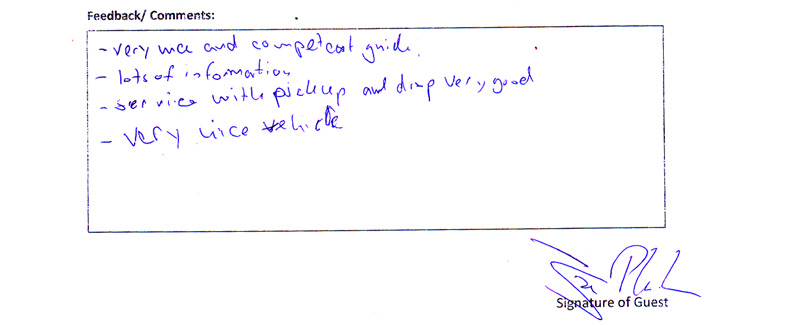 Feedback/ Comments:
- very nice and competent guide.
- lots of information
- service with pickup and drop very good
- very nice vehicle
Signature of Guest